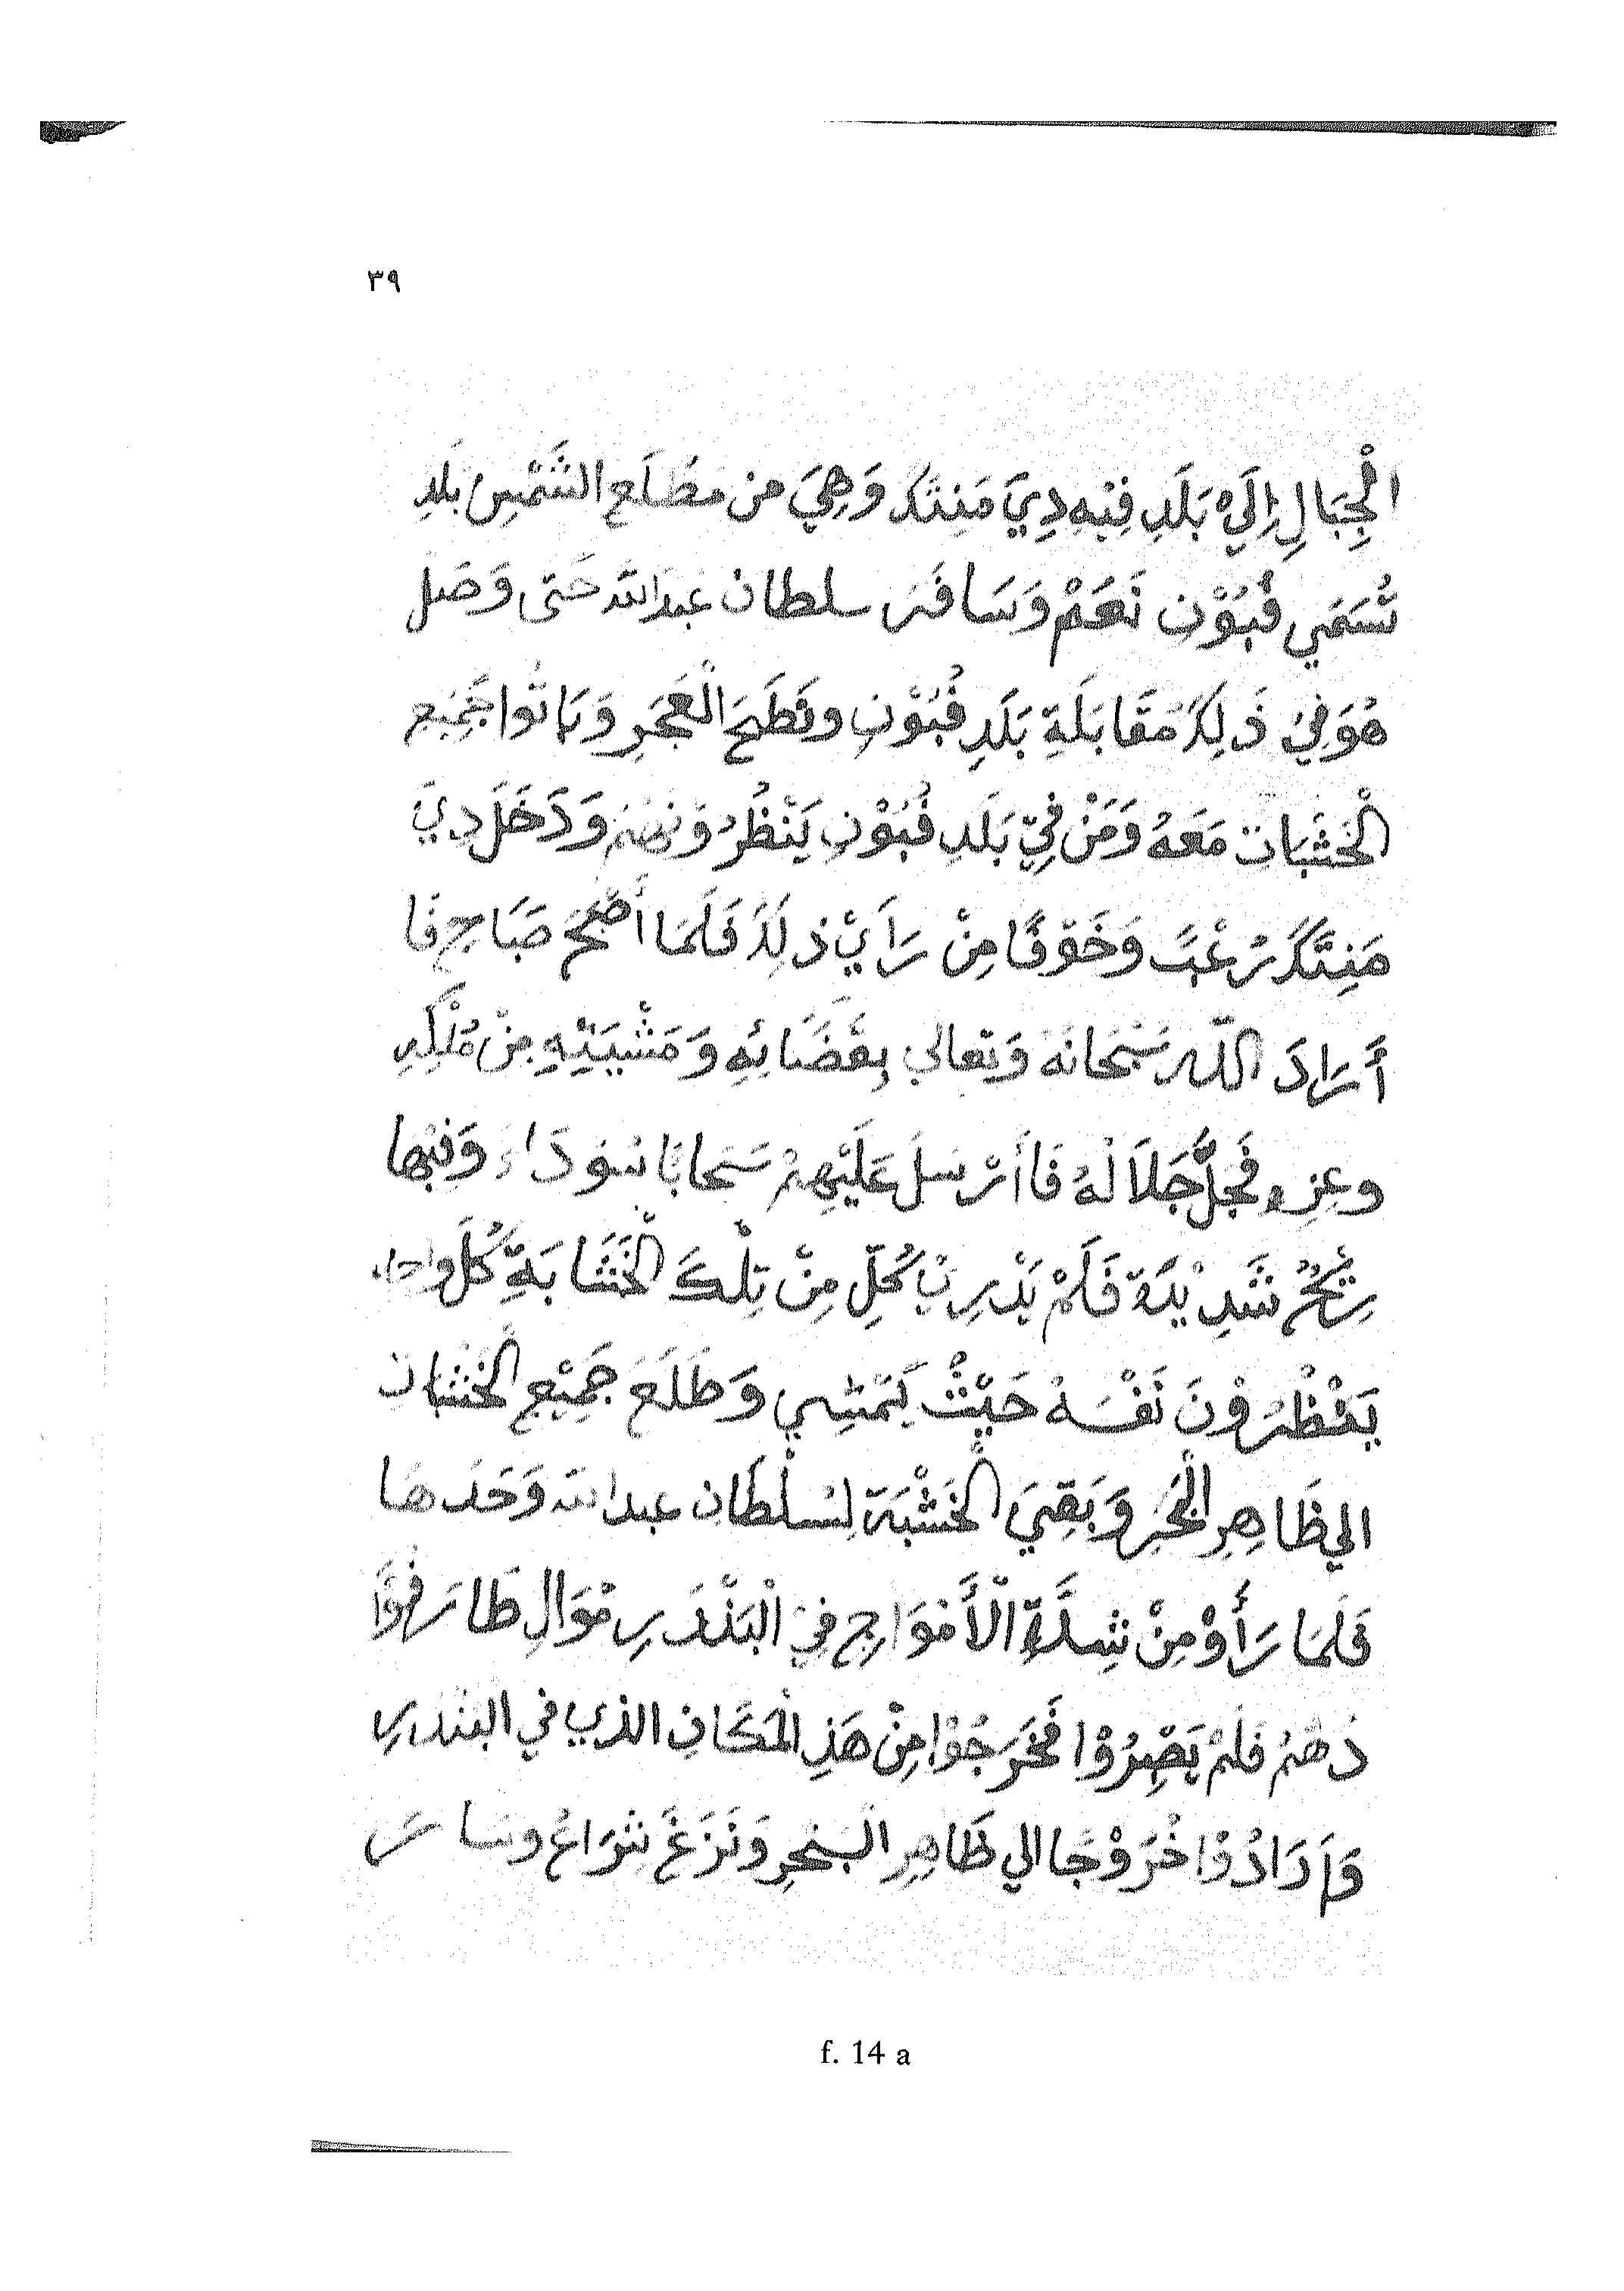 ٣٩
الْجِبَالِ إِلَيْ بَلَدِ فِيْهِ دِيَ مَنِتَكَ وَهِيَ من مطْلَع الشَّمْسِ بَلَدِ
تُسَمَي فُبُوْنِ نَعَمْ وَسَافَرَ سلطان عبدالله حَتى وَصَل
هُوَ فِيْ ذَلِكَ مُقَابَلَةِ بَلَدِ فُبُوْنِ وَنَطَحَ الْعَجَرِ وَبَاتُوا جَمِيْعِ
الْخَشَبَات مَعَهُ وَمَنْ فِيْ بَلَدِ فُبُوْنِ يَنْظُرُوْنَهُمْ وَدَخَلَ دِيَ
مَنِتَكَ رُعْبً وَخَوْفًا مِنْ رَأَيْ ذلِكَ فَلَمَا أَصْبَحَ صَبَاحِ فَا
أَرَادَ اللّه سُبْحَانَهُ وَتعالي بِقَضَائِهِ وَمَشْيَيَتِهِ مِنْ مُلْكِهِ
وعِزِهِ فَجَلَّ جَلَالُهُ فَاأَرْسَلَ عَلَيْهِمْ سَحابًا سَوْدَاءَ وَفيْها
رِيْحُ شَدِيْدَة فَلَمْ يَدْرِيْ كُلِّ مِنْ تِلْكَ الْخَشَابَةِ كُل واحد
يَنْظُرُوْنَ نَفْسَهُ حَيْثُ يَمْشِي وَطَلَعَ جَمِيْعِ الْخَشَبَات
الي ظَاهِرِ الْبَحْرِ وَبَقِيَ الْخَشْبَة لِسُلْطَانِ عبدالله وَحَدهَا
فَلَمَا رَأَوْ مِنْ شِدَّةِ الْأَمْوَاجِ فِيْ الْبَنْدَرِ مْوَالِ طَارَ
ذهُمْ فَلَمْ يَصْبِرُوْا فَخَرَجُوْا مِنْ هَذِ الْمَكَانِ الذي في البنْدرِ
وَأَرَادُوْا خُرُوْجًا الي ظَاهِرِ الْبَحْرِ وَنَزَعَ شِرَاعُ وسَارَ
f. 14 a